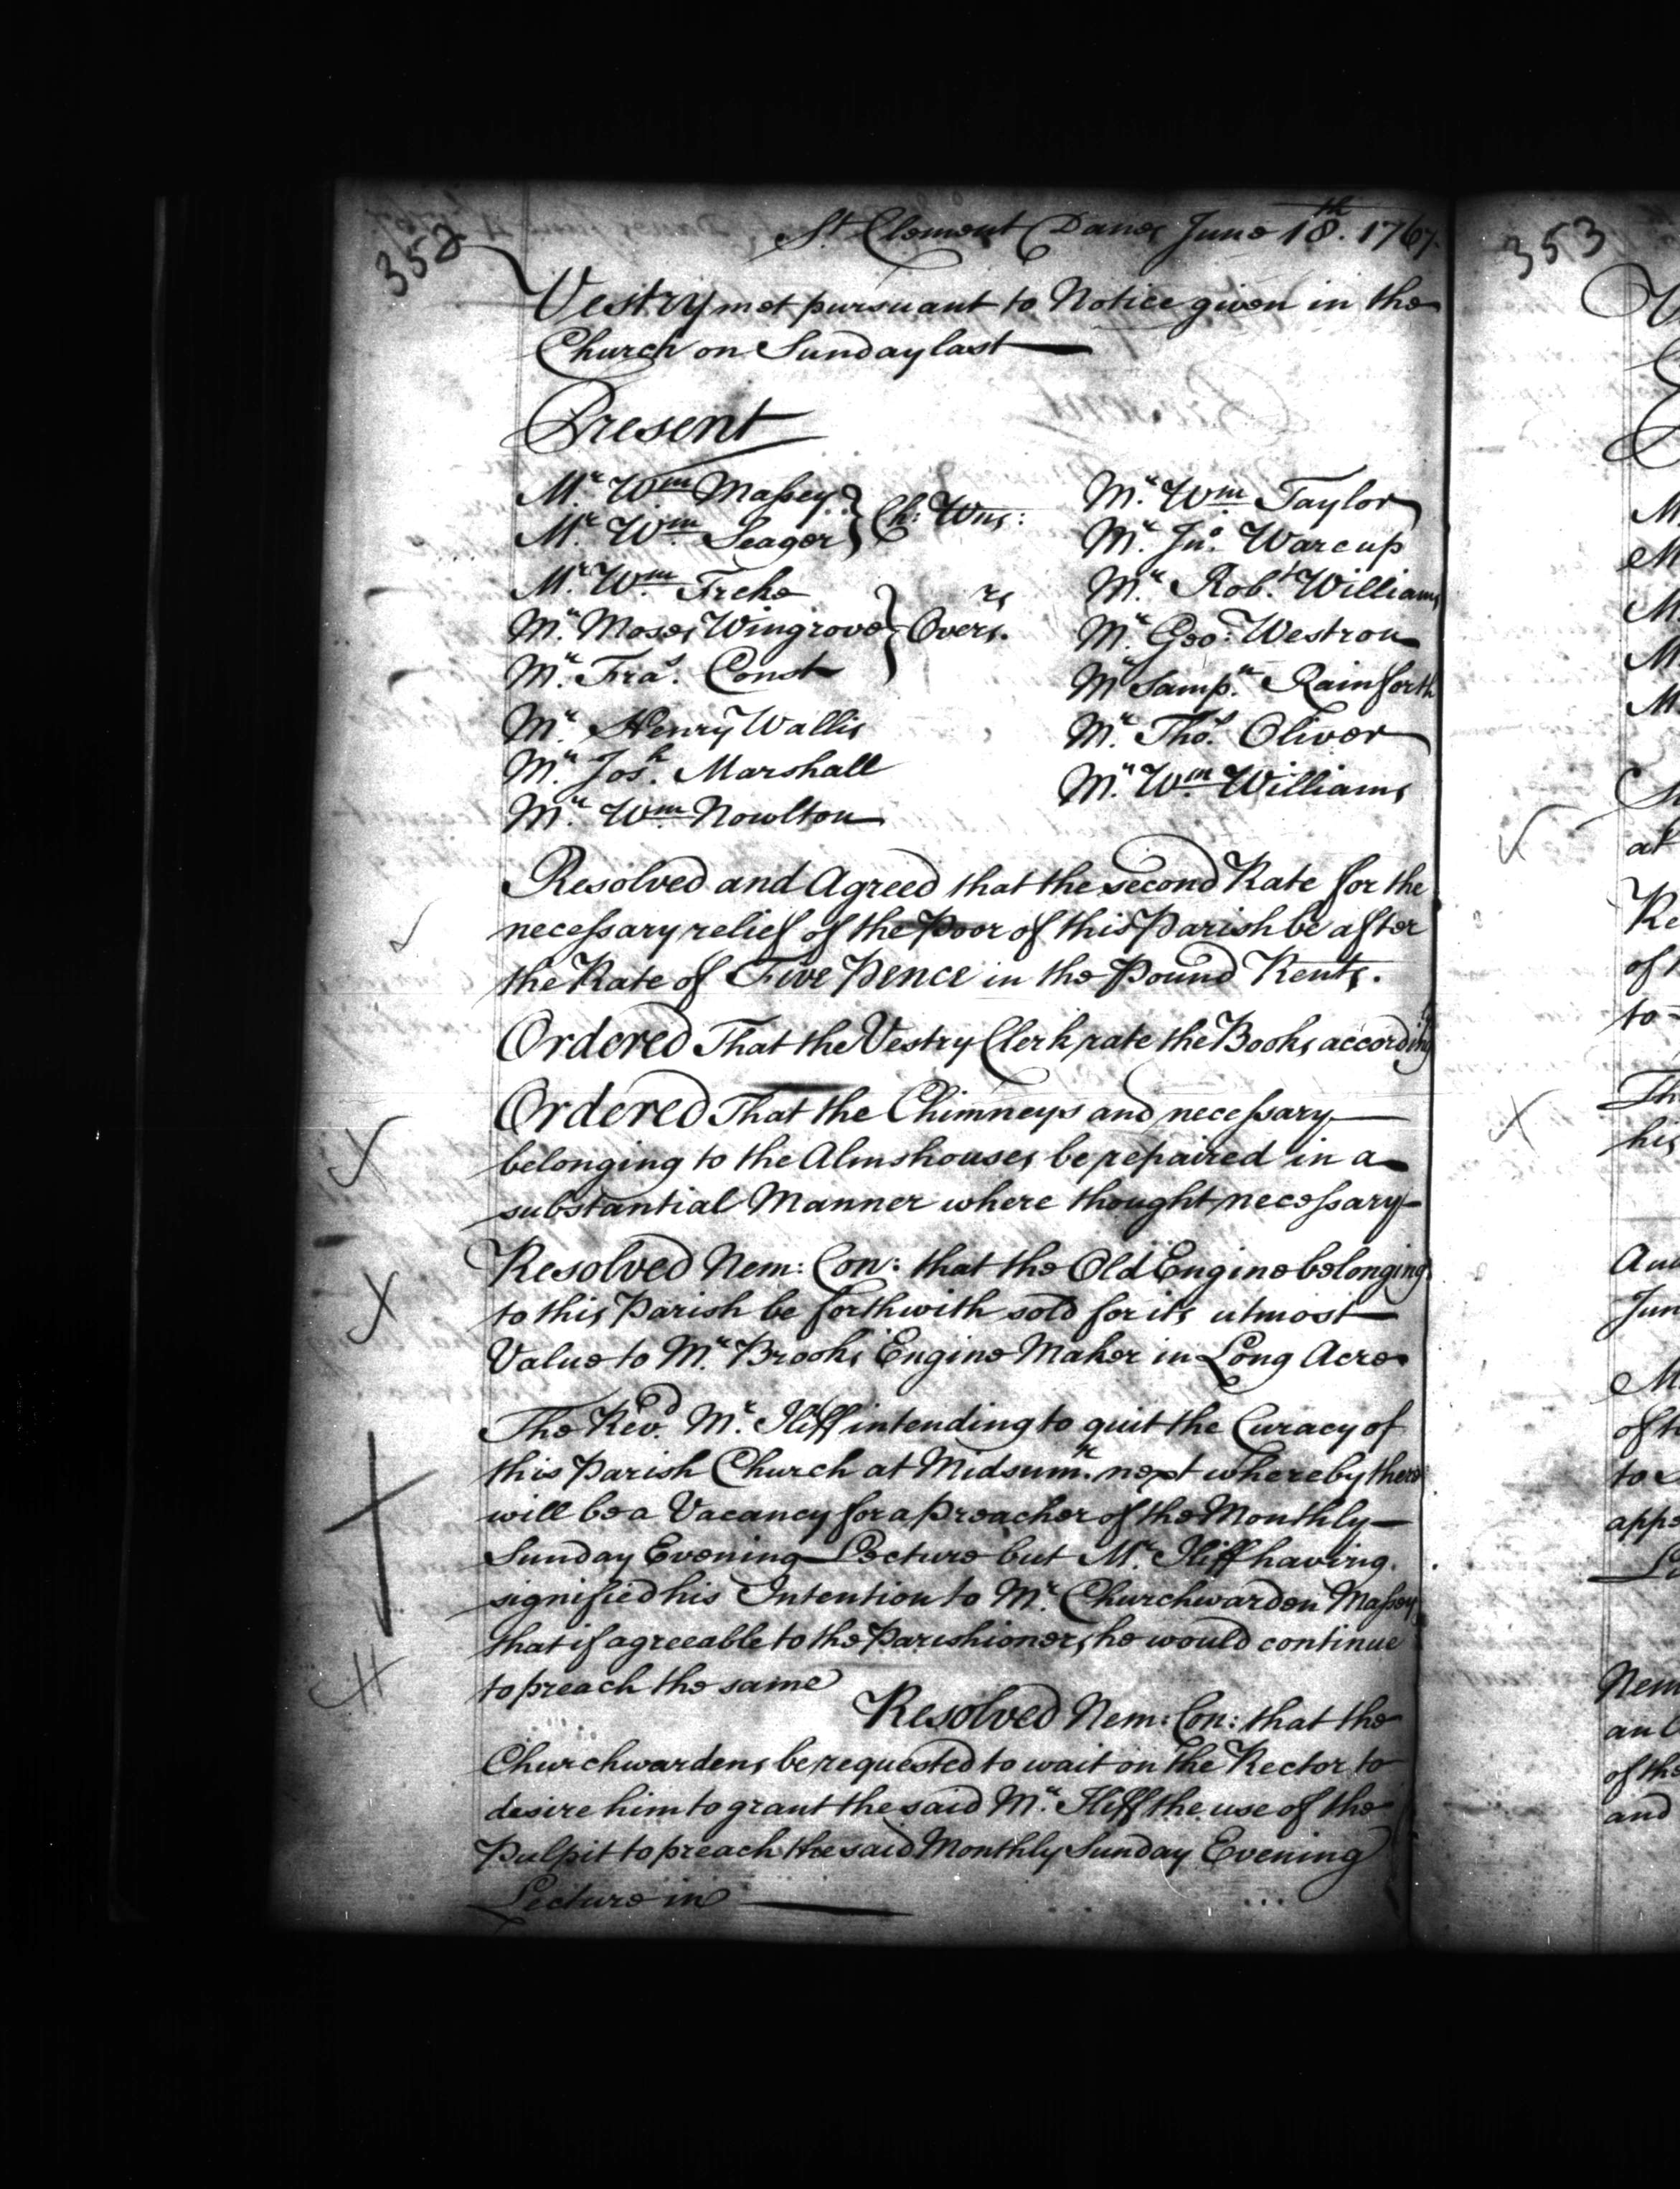 352
St. Clement Danes June 18th. 1767.
Vestry met pursuant to Notice given in the
Church on Sunday last
Present
Mr. Wm. Massey } Ch: Wns:
Mr. Wm. Seager
Mr. Wm. Freke
Mr. Moses Wingrove } Overs.rs
Mr. Fras. Const
Mr. Henry Wallis
Mr. Josh. Marshall
Mr. Wm. Nowlton
Mr. Wm. Taylor
Mr. Jno. Warcup
Mr. Robt. Williams
Mr. Geo: Westron
Mr. Sampn. Rainforth
Mr. Thos. Oliver
Mr. Wm. Williams
Resolved and Agreed that the second Rate for the
necessary relief of the Poor of this Parish be after
the Rate of Five Pence in the Pound Rents.
Ordered That the Vestry Clerk rate the Books accordingly
Ordered That the Chimneys and necessary
belonging to the Almshouses be repaired in a
substantial Manner where thought necessary
Resolved Nem: Con: that the Old Engine belonging
to this Parish be forthwith sold for its utmost
Value to Mr. Brooks Engine Maker in Long Acre
The Revd. Mr. Iliff intending to quit the Curacy of
this Parish Church at Midsumr. next whereby there
will be a Vacancy for a Preacher of the Monthly
Sunday Evening Lecture but Mr. Iliff having
signified his Intention to Mr. Churchwarden Massey
that if agreeable to the Parishioners he would continue
to preach the same
Resolved Nem: Con: that the
Churchwardens be requested to wait on the Rector to
desire him to grant the said Mr. Iliff the use of the
Pulpit to preach the said Monthly Sunday Evening
Lecture in
353
at
of
to
his
Aud
Jun
of
to
appe
Nem
an
of the
and